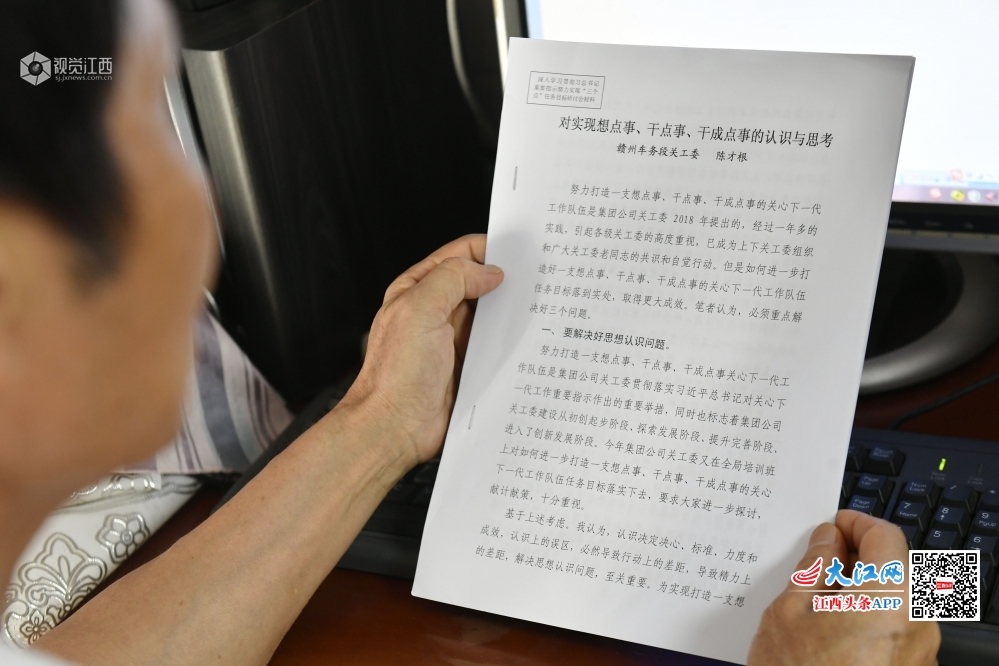 视觉江西
sj.jxnews.com.cn
深入学习贯彻习总书记
重要指示努力实现“三个
点”任务目标研讨会材料
对实现想点事、干点事、干成点事的认识与思考
赣州车务段关工委 陈才根
努力打造一支想点事、干点事、干成点事的关心下一代
工作队伍是集团公司关工委 2018 年提出的，经过一年多的
实践，引起各级关工委的高度重视，已成为上下关工委组织
和广大关工委老同志的共识和自觉行动。但是如何进一步打
造好一支想点事、干点事、干成点事的关心下一代工作队伍
任务目标落到实处，取得更大成效。笔者认为，必须重点解
决好三个问题。
一、要解决好思想认识问题。
努力打造一支想点事、干点事、干成点事关心下一代工
作队伍是集团公司关工委贯彻落实习近平总书记对关心下
一代工作重要指示作出的重要举措，同时也标志着集团公司
关工委建设从初创起步阶段、探索发展阶段、提升完善阶段，
进入了创新发展阶段。今年集团公司关工委又在全局培训班
上对如何进一步打造一支想点事、干点事、干成点事的关心
下一代工作队伍任务目标落实下去，要求大家进一步探讨，
献计献策，十分重视。
基于上述考虑。我认为，认识决定决心、标准、力度和
成效，认识上的误区，必然导致行动上的差距，导致精力上
的差距，解决思想认识问题，至关重要。为实现打造一支想
大江网
江西头条APP